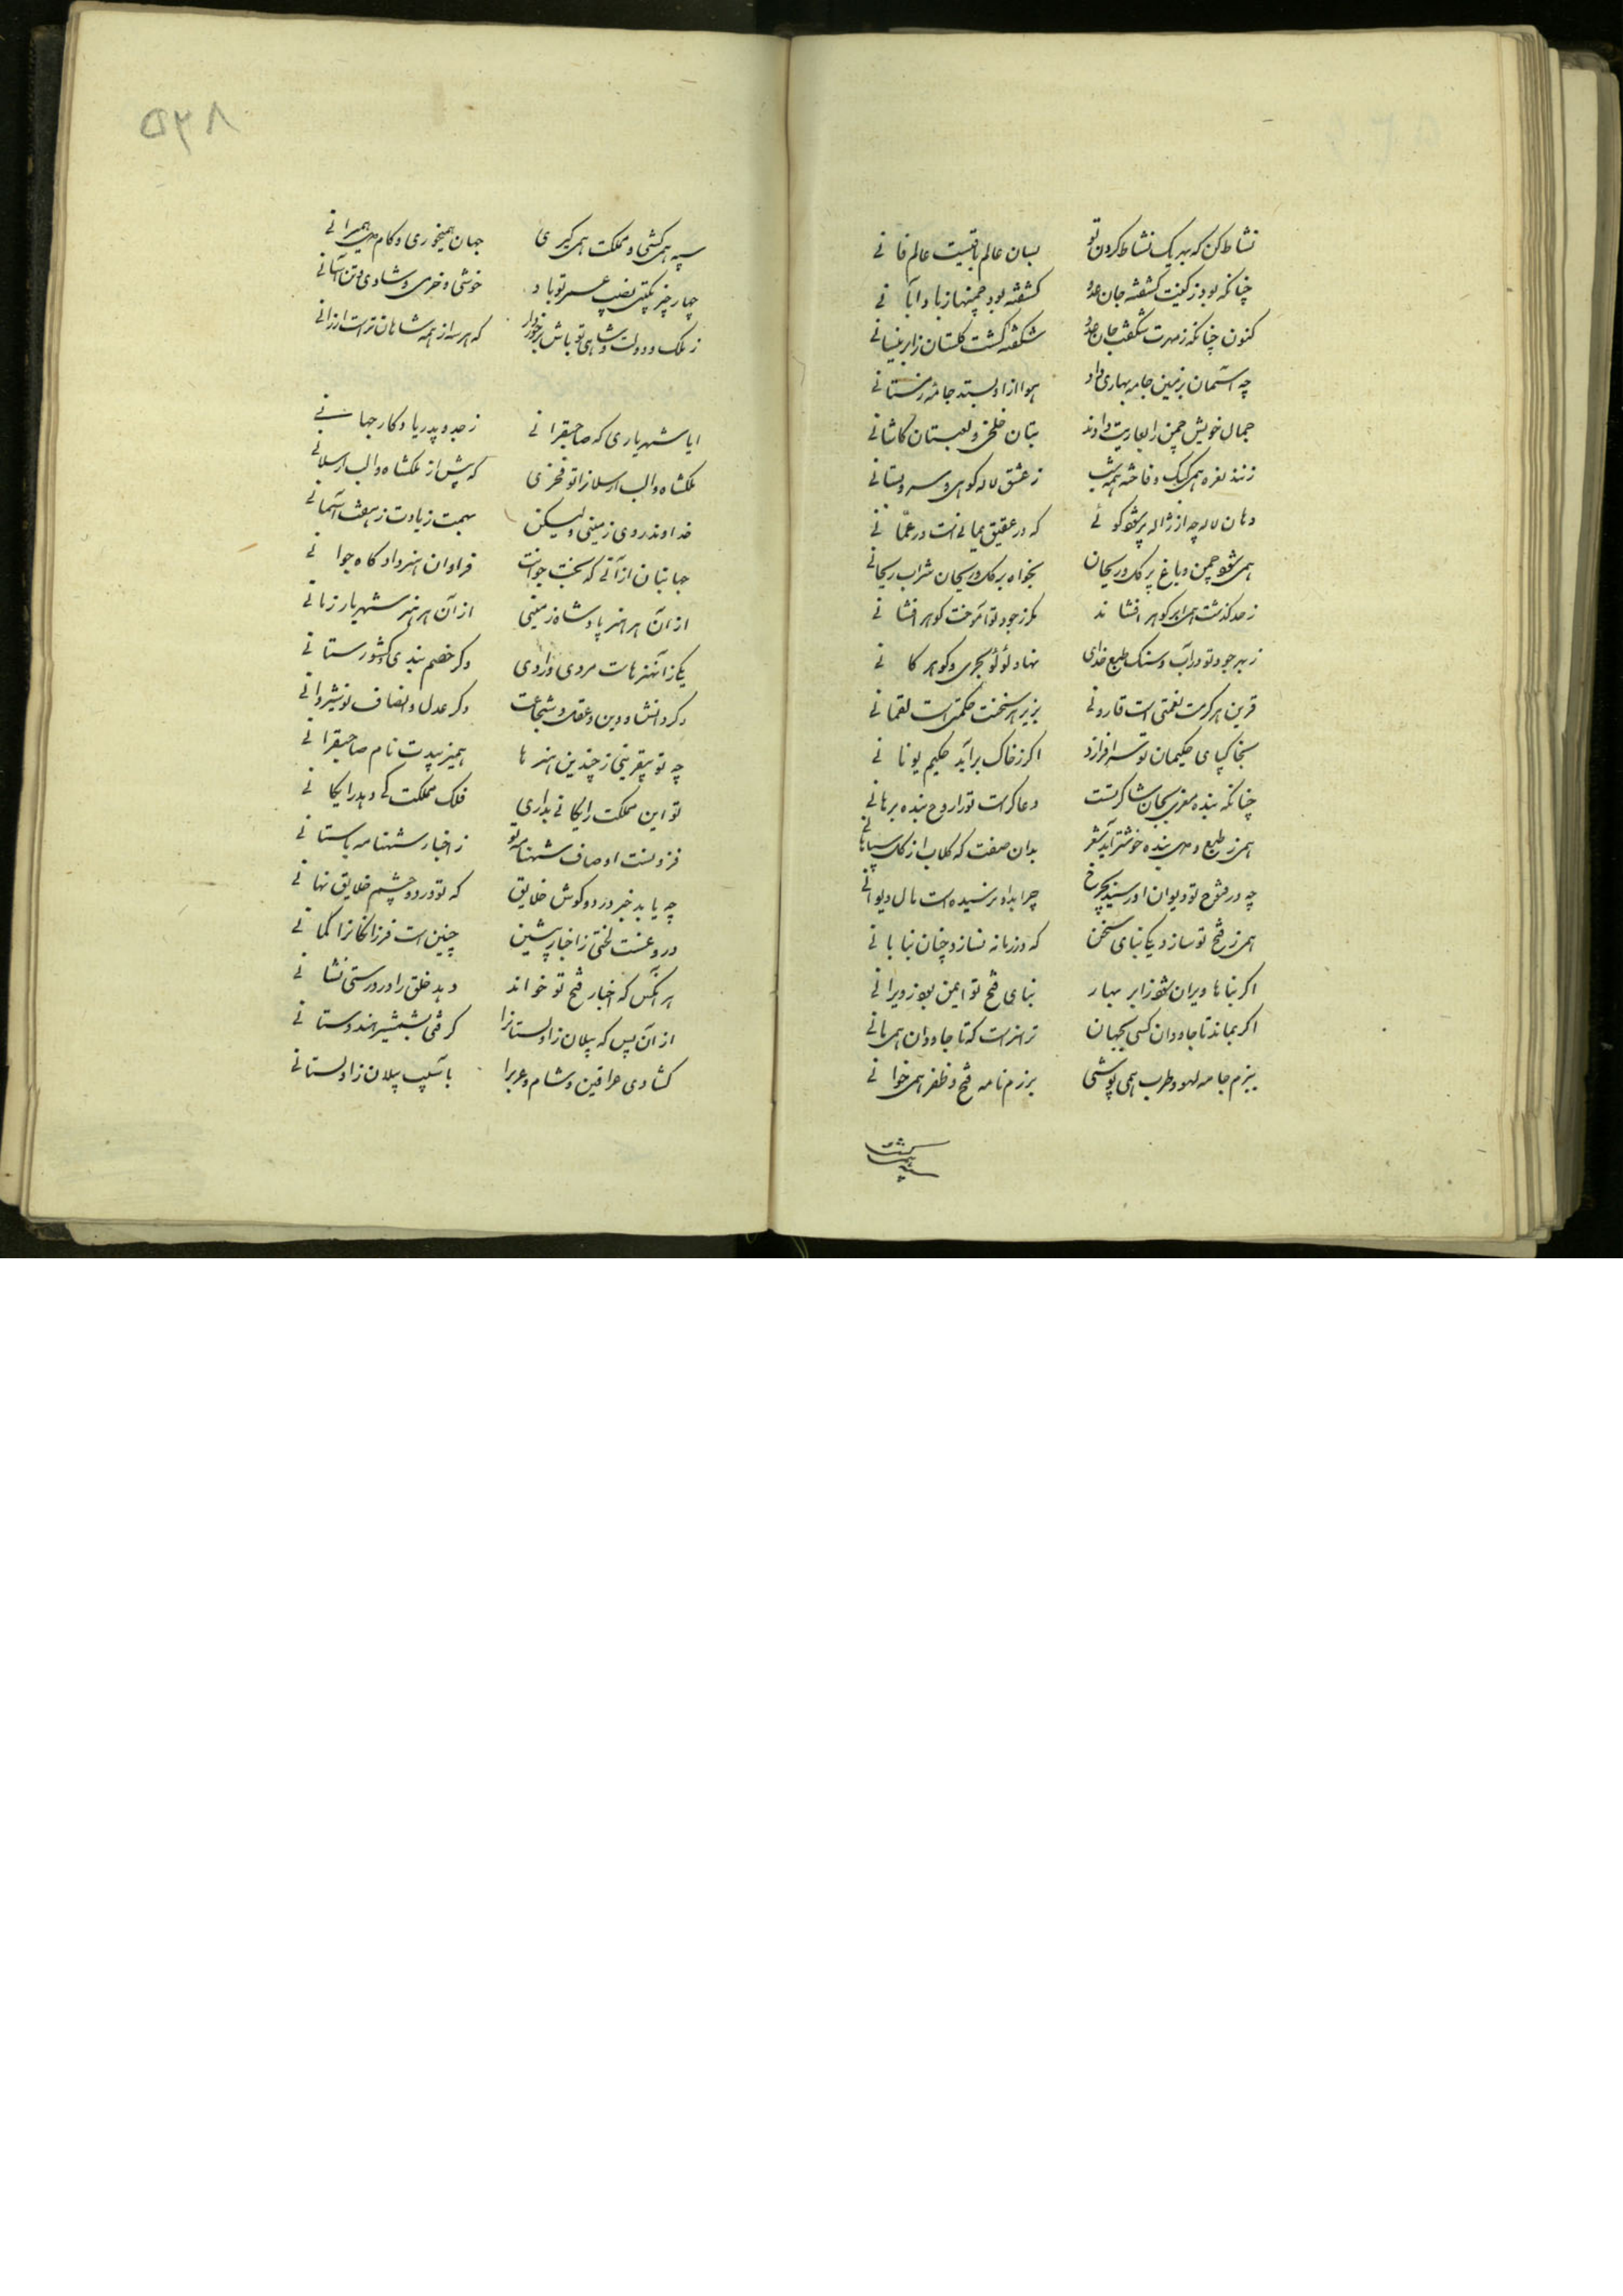 نشاط کن که بهر یک نشاط کردن تو بسان عالم باقیست عالم فانی
چنانکه بود ز کینت کشفته جان عدو کشفته بود چمنها ز باد آبانی
کنون چنانکه ز مهرت شکفت جان عدو شکفته گشت گلستان ز ابر نیسانی
چه آسمان بزمین جامه بهاری داد هوا ازو بستد جامه زمستانی
جمال خویش چمن را بعاریت دادند بتان خلخ و لعبتان کاشانی
زنند نعره همی کبک و فاخته همه شب ز عشق لاله کوهی و سرو بستانی
دهان لاله چه از ژاله پر شود گوئی که در عقیق یمانی است در عمانی
همی شود چمن و باغ پر گل و ریحان بخواه بر گل و ریحان شراب ریحانی
ز حد گذشت همی ابر گوهر افشاند مگر ز جود تو آموخت گوهر افشانی
ز بهر جود تو در آب و سنگ طبع خدای نهاد لؤلؤ بحری و گوهر کانی
قرین هر کرمت نعمتی است قارونی بزیر هر سخنت حکمتی است لقمانی
بخاکپای حکیمان تو سر افرازد اگر ز خاک برآید حکیم یونانی
چنانکه بنده معزی بجان شاکر تست دعاگر است تو را روح بنده برهانی
همی ز طبع و دل بنده خوشتر آید شعر بدان صفت که گلاب از گل سپاهانی
چه در فتوح تو دیوان او رسید بچرخ چرا بدو نرسیده است مال دیوانی
همی ز فتح تو سازد یکی بنای سخن که در زمانه نسازد چنان بنا بانی
اگر بناها ویران شود ز ابر بهار بنای فتح تو ایمن بود ز ویرانی
اگر بماند تا جاودان کسی بجهان تو را سزاست که تا جاودان همی مانی
ببزم جامه لهو و طرب همی پوشی برزم نامه فتح و ظفر همی خوانی
۵۳۸
سپه همی کشی و مملکت همی گیری جهان همیخوری و کام دل همیرانی
چهار چیز بگیتی نصیب عمر تو باد خوشی و خرمی و شادی و تن آسانی
ز ملک و دولت و شاهی تو باش برخوردار که هر سه از همه شاهان تراست ارزانی
ایا شهریاری که صاحبقرانی ز جد و پدر یادگار جهانی
ملکشاه والب ارسلانرا تو فخری که پیش از ملکشاه والب ارسلانی
خداوند روی زمینی ولیکن بهمت زیادت ز هفت آسمانی
جهانبان از آنی که بختت جوانست فراوان هنر داد گاه جوانی
از آن هر هنر پادشاه زمینی از آن هر هنر شهریار زمانی
یکی زآن هنرهات مردی و رادی دگر خصم بندی و کشورستانی
دگر دانش و دین و عقل و شجاعت دگر عدل و انصاف نوشیروانی
چه تو بیقرینی ز چندین هنرها همیزیبدت نام صاحبقرانی
تو این مملکت رایگانی نداری فلک مملکت کی دهد رایگانی
فزونست اوصاف شهنامه تو ز اخبار شهنامه باستانی
چه یابد خبر در دو گوش خلایق که تو در دو چشم خلایق نهانی
دروغست لختی ز اخبار پیشین چنین است فرزانگانرا گمانی
هر آنکس که اخبار فتح تو خواند دهد خلق را در درستی نشانی
از آن پس که پیلان زاولستانرا گرفتی بشمشیر هندوستانی
گشادی عراقین و شام و عرب را بآسیب پیلان زاولستانی